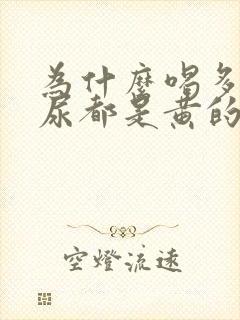 為什麼喝多
尿都是黃的
空燈流遠